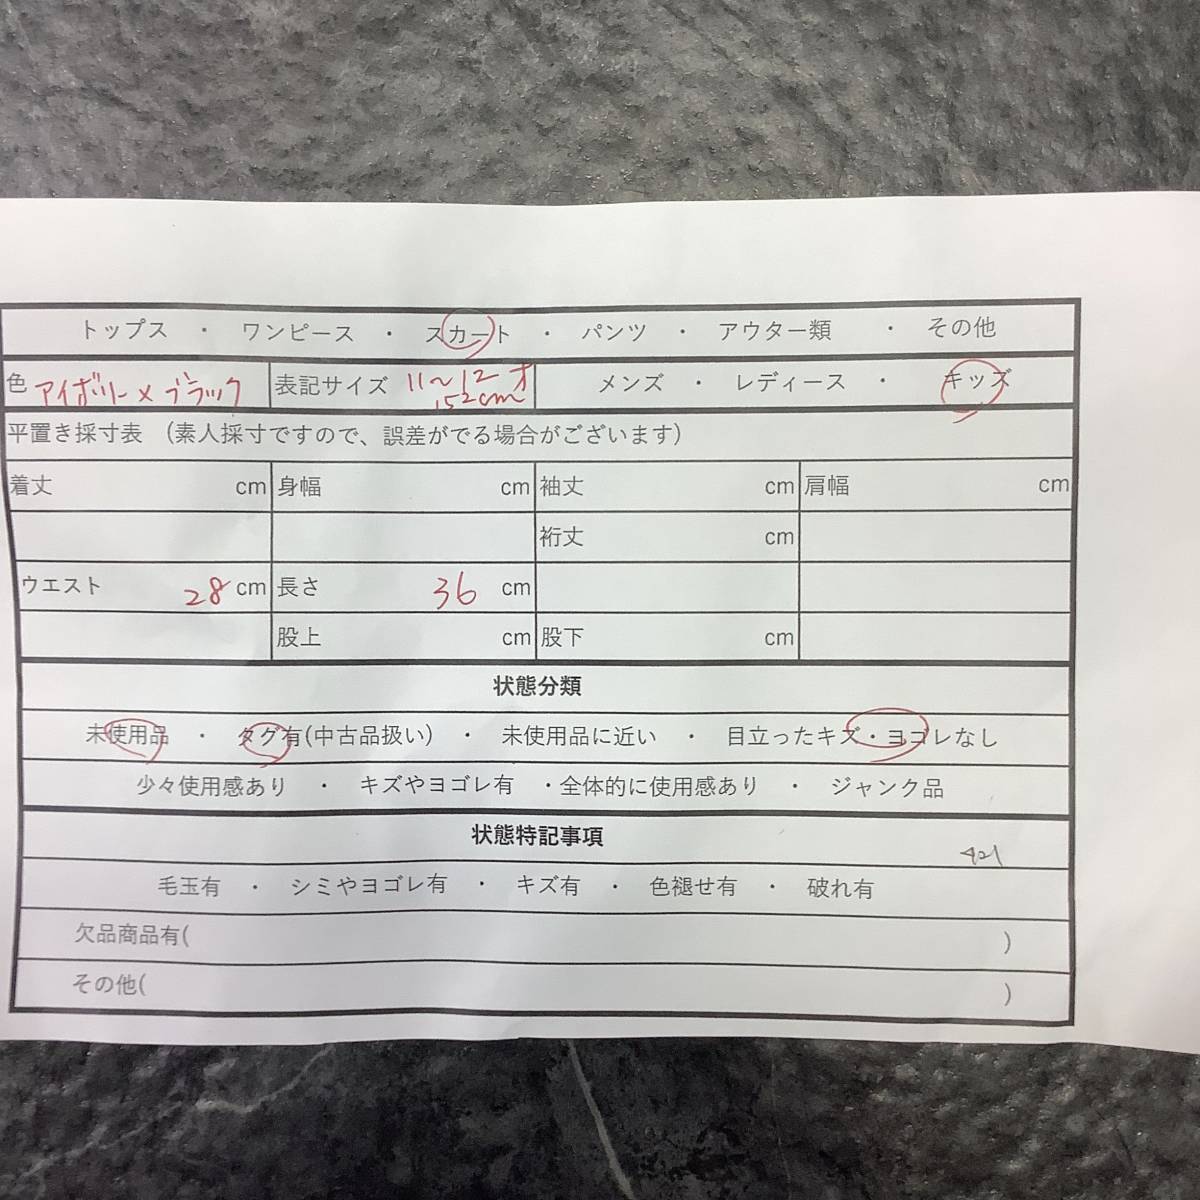 トップス ・ ワンピース ・ スカート ・ パンツ ・ アウター類 ・ その他
色 アイボリー×ブラック 表記サイズ 11〜12才 メンズ ・ レディース ・ キッズ
152cm
平置き採寸表 （素人採寸ですので、誤差がでる場合がございます）
着丈 cm 身幅 cm 袖丈 cm 肩幅 cm
裄丈 cm
ウエスト 28 cm 長さ 36 cm
股上 cm 股下 cm
状態分類
未使用品 ・ タグ有(中古品扱い) ・ 未使用品に近い ・ 目立ったキズ・ヨゴレなし
少々使用感あり ・ キズやヨゴレ有 ・全体的に使用感あり ・ ジャンク品
状態特記事項
毛玉有 ・ シミやヨゴレ有 ・ キズ有 ・ 色褪せ有 ・ 破れ有
欠品商品有( )
その他( )